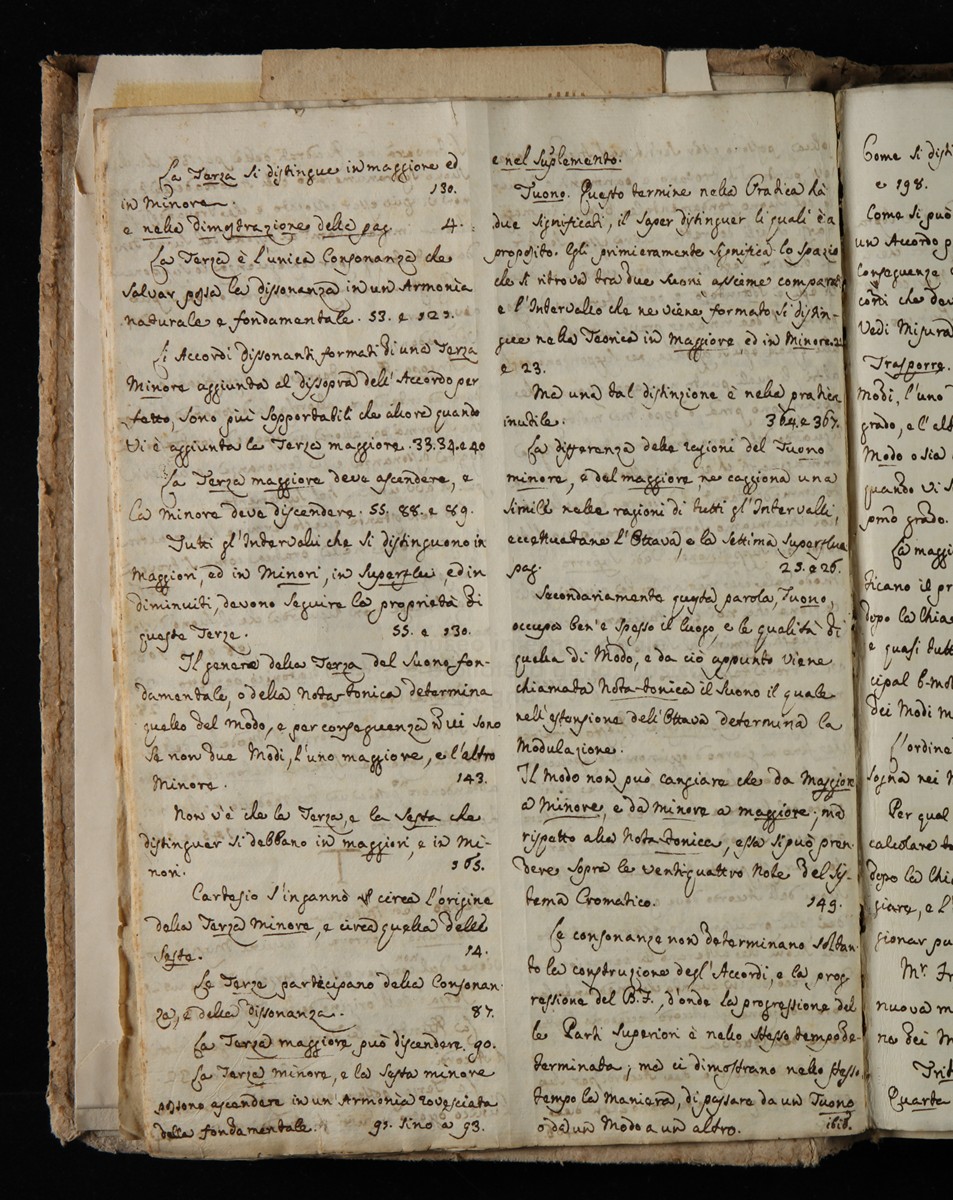 La Terza si distingue in maggiore ed
in Minore. 130.
e nella dimostrazione della pag. 4.
La Terza è l'unica Consonanza che
salvar possa la dissonanza in un Armonia
naturale e fondamentale. 53. e 123.
Li Accordi dissonanti formati di una Terza
Minore aggiunta al dissopra dell'Accordo per
fetto, sono più sopportabili che allora quando
vi è aggiunta la Terza maggiore. 33. 34. e 40
La Terza maggiore deve ascendere, e
la minore deve discendere. 55. 88. e 89.
Tutti gl'Intervalli che si distinguono in
maggiori, ed in Minori, in Superflui, ed in
diminuiti, devono seguire la proprietà di
queste Terze. 55. e 130.
Il genere della Terza del Suono fon-
damentale, o della Nota-tonica determina
quello del Modo, e per conseguenza vi sono
se non due Modi, l'uno maggiore, e l'altro
Minore. 143.
Non v'è che la Terza, e la Sesta che
distinguer si debbano in maggiori, e in Mi-
nori. 165.
Cartesio s'ingannò circa l'origine
della Terza Minore, e circa quella della
Sesta. 14.
Le Terze partecipano della Consonan-
za, e della dissonanza. 87.
La Terza maggiore può discendere. 90.
La Terza minore, e la Sesta minore
possono ascendere in un Armonia rovesciata
della fondamentale. 91. sino a 93.
e nel suplemento.
Tuono. Questo termine nella Pratica hà
due significati, il saper distinguer li quali è a
proposito. Egli primieramente significa lo spazio
che si ritrova tra due Suoni assieme comparati
e l'Intervallo che ne viene formato si distin-
gue nella Teorica in maggiore, ed in Minore. 21
e 23.
Ma una tal distinzione è nella pratica
inutile. 364. e 367.
La differenza delle ragioni del Tuono
minore, e del maggiore ne caggiona una
simile nelle ragioni di tutti gl'Intervalli,
eccettuatane l'Ottava, e la Settima Superflua
pag. 25. e 26.
Secondariamente questa parola, Tuono,
occupa ben e spesso il luogo, e la qualità di
quella di Modo, e da ciò appunto viene
chiamata Nota-tonica il Suono il quale
nell'estensione dell'Ottava determina la
Modulazione.
Il Modo non può cangiare che da Maggiore
a Minore, e da Minore a maggiore; ma
rispetto alla Nota-tonica, essa si può pren-
dere sopra le ventiquattro Note del Si-
tema Cromatico. 149.
Le consonanze non determinano soltan-
to la construzione degl'Accordi, e la prog-
ressione del B.F., d'onde la progressione del
le Parti Superiori è nello stesso tempo de-
terminata; ma ci dimostrano nello stesso
tempo la maniera, di passare da un Tuono
o da un Modo a un altro. ibid.
Come si dist
e 198.
Come si può
un Accordo p
conseguenze
corti che dev
Vedi Misura
Trasporre.
Modi, l'uno
grado, e l'al
Modo o sia
quando vi s
pmo grado.
La maggi
ticano il pr
dopo la Chia
e quasi tutt
cipal b-mol
dei Modi m
L'ordine
sogna nei
Per qual
calcolare t
dopo la Chi
giare, e l'
gionar pu
Mr. Fr
nuova m
na dei M
Trit
Quarta